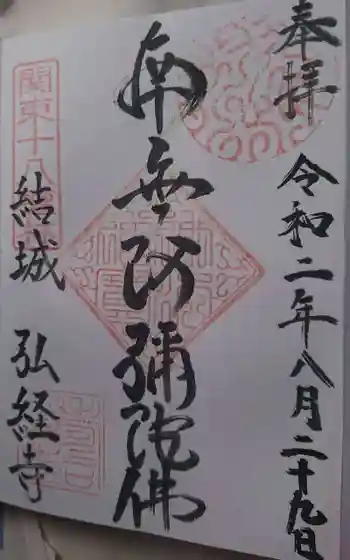 奉拝
令和二年八月二十九日
南無阿彌陀佛
関東十八
結城 弘経寺